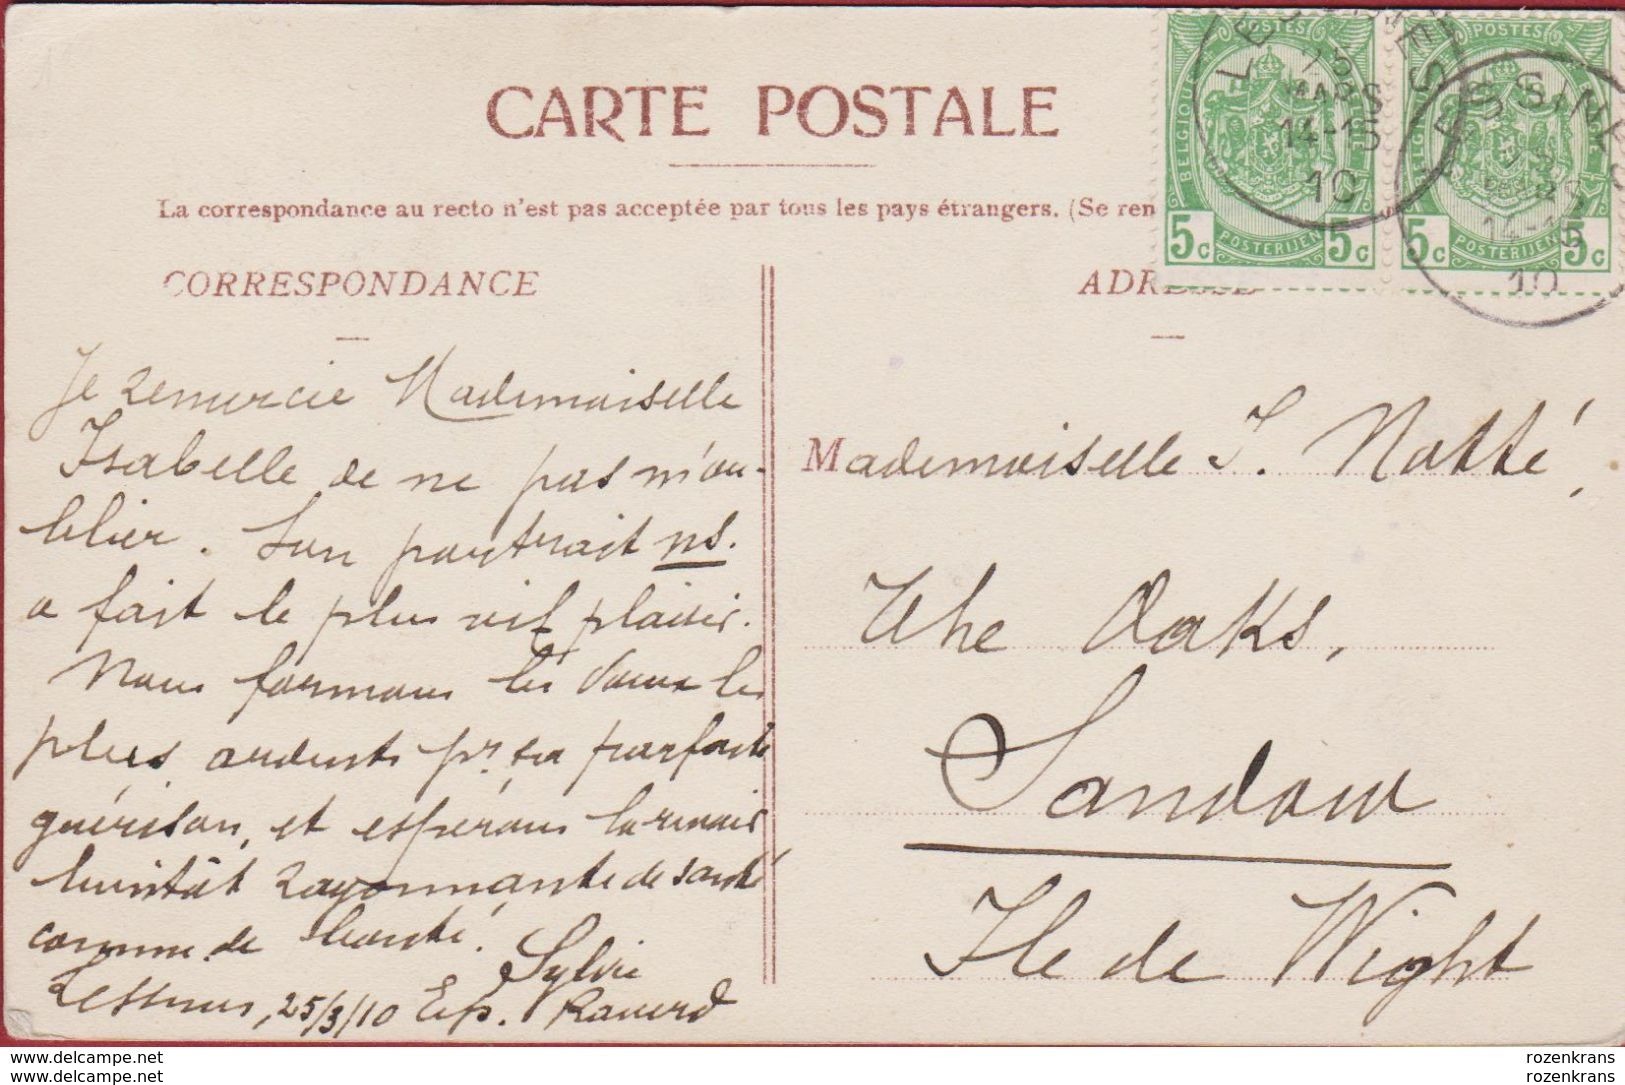 CARTE POSTALE
La correspondance au recto n'est pas acceptée par tous les pays étrangers. (Se ren
CORRESPONDANCE
ADRESSE
BELGIQUE POSTES BELGIE
5c POSTERIJEN 5c
BELGIQUE POSTES BELGIE
5c POSTERIJEN 5c
LESSINES
25
MARS
14-15
10
LESSINES
25
MARS
14-15
10
Je remercie Mademoiselle
Isabelle de ne pas m'ou-
blier. Son portrait ns.
a fait le plus vif plaisir.
Nous formons les vœux les
plus ardents pr. sa parfaite
guérison, et espérons la revoir
bientôt rayonnante de santé
comme de beauté.
Sylvie
Lessines, 25/3/10 Exp.
Mademoiselle I. Notté,
The Oaks,
Sandow
Ile de Wight
www.delcampe.net
rozenkrans
www.delcampe.net
rozenkrans